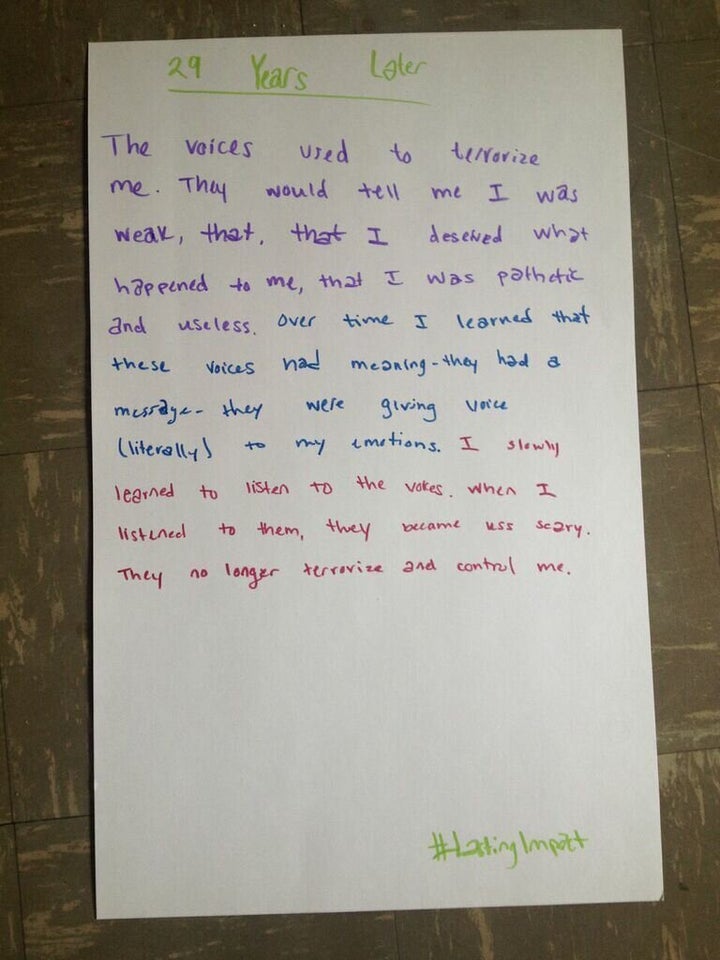 29 Years Later
The voices used to terrorize
me. They would tell me I was
weak, that, that I deserved what
happened to me, that I was pathetic
and useless. Over time I learned that
these voices had meaning - they had a
message - they were giving voice
(literally) to my emotions. I slowly
learned to listen to the voices. When I
listened to them, they became less scary.
They no longer terrorize and control me.
#LastingImpact